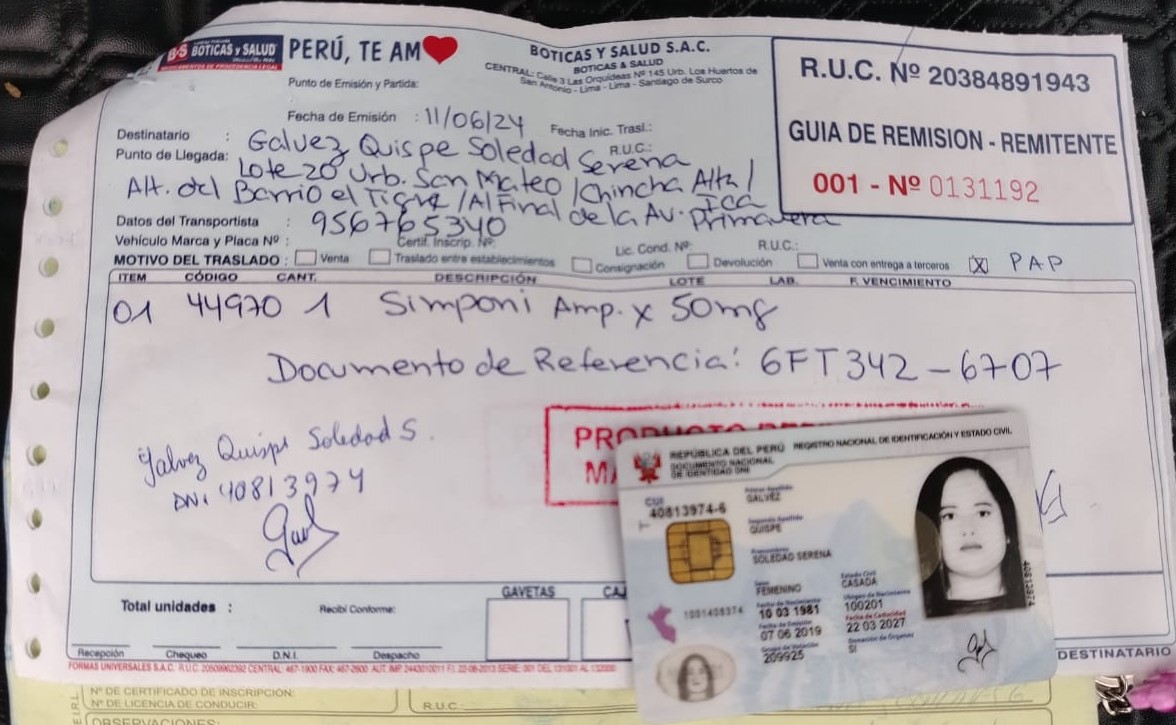 B&S BOTICAS Y SALUD
PERÚ, TE AM
BOTICAS Y SALUD S.A.C.
BOTICAS & SALUD
CENTRAL: Calle 3 Las Orquídeas Nº 145 Urb. Los Huertos de
San Antonio - Lima - Lima - Santiago de Surco
R.U.C. Nº 20384891943
GUIA DE REMISION - REMITENTE
001 - Nº 0131192
Punto de Emisión y Partida:
Fecha de Emisión : 11/06/24 Fecha Inic. Trasl.:
Destinatario : Galvez Quispe Soledad Serena R.U.C.:
Punto de Llegada: Lote 20 Urb. San Mateo / Chincha Alta /
Alt. del Barrio el Tigre / Al Final de la Av. Primavera Ica
Datos del Transportista : 956765340
Vehículo Marca y Placa Nº : Certif. Inscrip. Nº: Lic. Cond. Nº: R.U.C.:
MOTIVO DEL TRASLADO : Venta Traslado entre establecimientos Consignación Devolución Venta con entrega a terceros X PAP
ITEM CÓDIGO CANT. DESCRIPCIÓN LOTE LAB. F. VENCIMIENTO
01 44970 1 Simponi Amp. x 50mg
Documento de Referencia: 6FT342-6707
Galvez Quispe Soledad S.
DNI 40813974
PRODUCTO
REPÚBLICA DEL PERÚ REGISTRO NACIONAL DE IDENTIFICACIÓN Y ESTADO CIVIL
DOCUMENTO NACIONAL
DE IDENTIDAD DNI
CUI
40813974-6
Primer Apellido
GALVEZ
Segundo Apellido
QUISPE
Prenombres
SOLEDAD SERENA
Sexo Estado Civil
FEMENINO CASADA
Fecha de Nacimiento Ubigeo de Nacimiento
10 03 1981 100201
Fecha de Emisión Fecha de Caducidad
07 06 2019 22 03 2027
Grupo de Votación Donación de Órganos
209925 SI
40813974
Total unidades : Recibí Conforme: GAVETAS
Recepción Chequeo D.N.I. Despacho DESTINATARIO
FORMAS UNIVERSALES S.A.C. R.U.C.
Nº DE CERTIFICADO DE INSCRIPCIÓN:
Nº DE LICENCIA DE CONDUCIR: R.U.C.:
OBSERVACIONES: